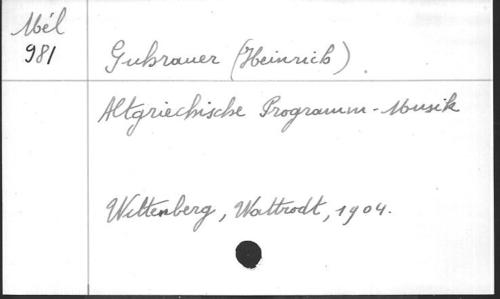 Mél
981
Guhrauer (Heinrich)
Altgriechische Programm-Musik
Wittenberg, Wattrodt, 1904.